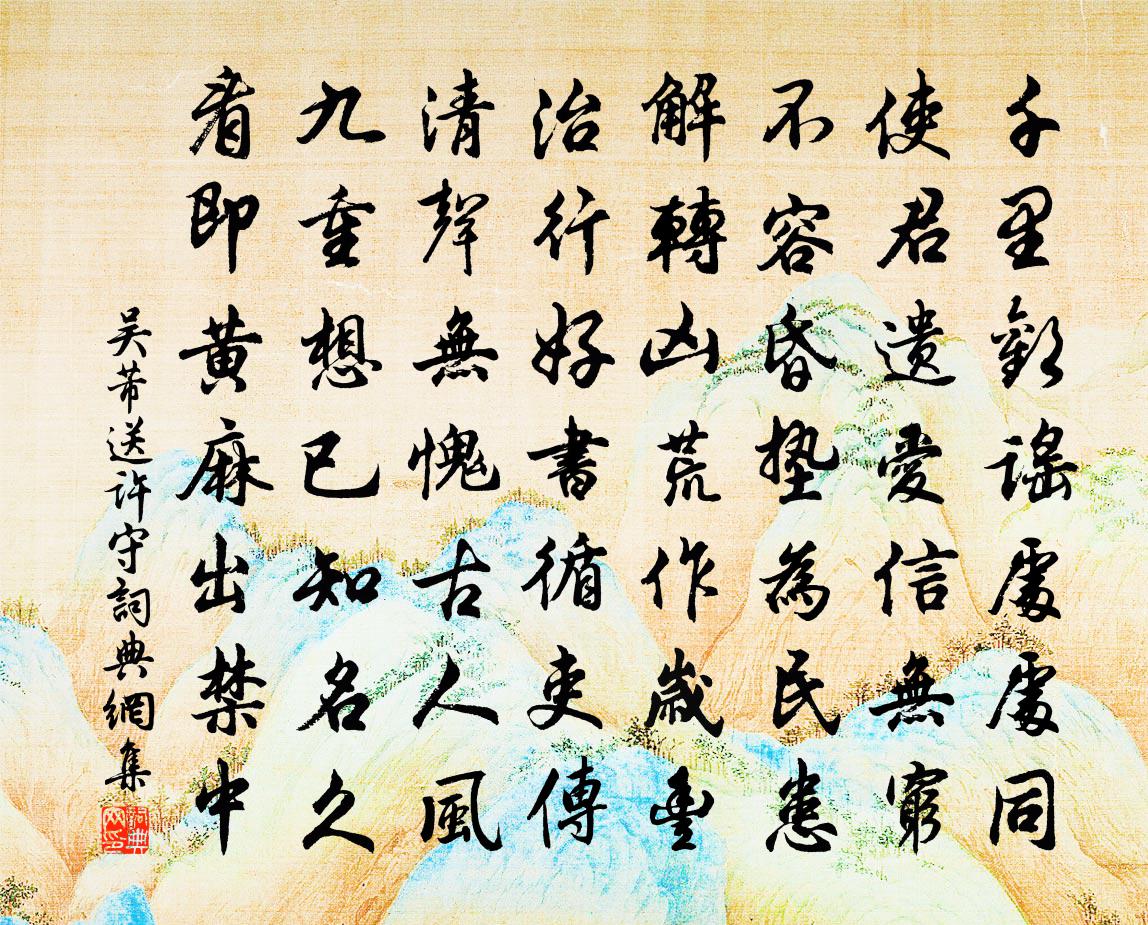 千里歡謠處處同
使君遺愛信無窮
不容昏墊為民患
解轉凶荒作歲豐
治行好書循吏傳
清聲無愧古人風
九重想已知名久
看即黃麻出禁中
吳芾送許守詞典網集
詞典网印